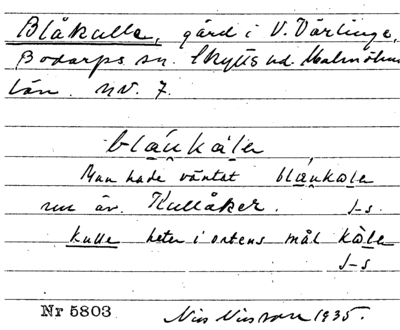 Blåkulla, gård i V. Värlinge,
Bodarps sn. Skytts hd Malmöhus
län. NV. 7.
bláu̯kàlǝ
Man hade väntat bláu̯kalǝ
nu äv. Kullåker. J-s.
kulle heter i ortens mål kàlǝ
J-s
Nr 5803 Nils Nilsson 1935.